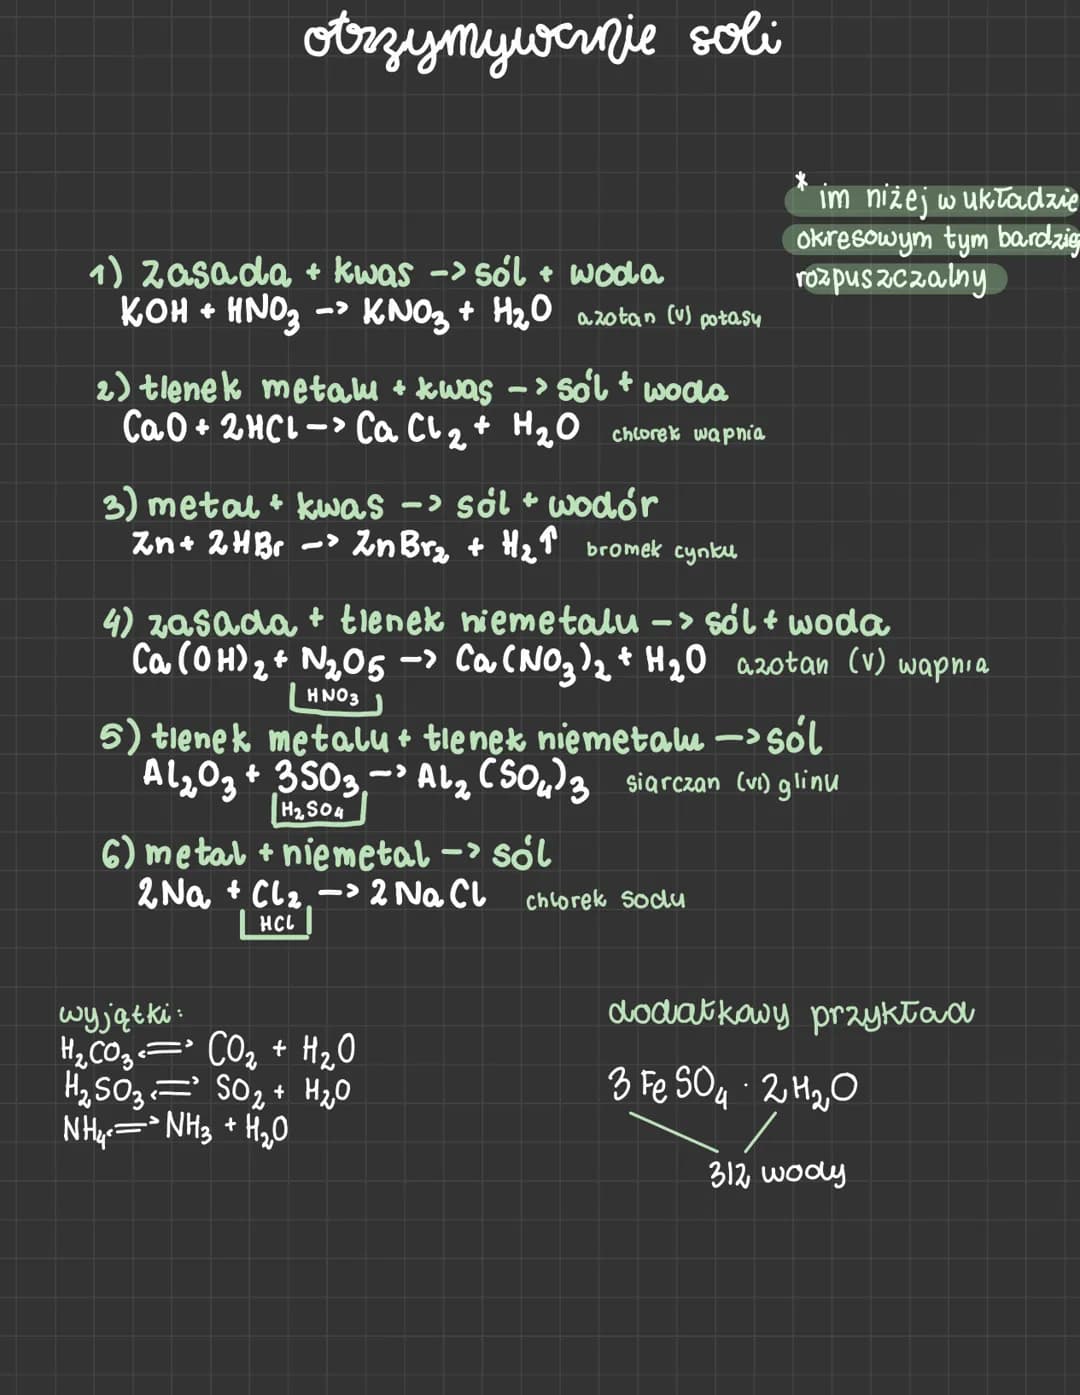 otrzymywanie soli
* im niżej w układzie
okresowym tym bardziej
rozpuszczalny
1) zasada + kwas -> sól + woda
KOH + HNO₃ -> KNO₃ + H₂O azotan (V) potasu
2) tlenek metalu + kwas -> sól + woda
CaO + 2HCl -> CaCl₂ + H₂O chlorek wapnia
3) metal + kwas -> sól + wodór
Zn + 2HBr -> ZnBr₂ + H₂↑ bromek cynku
4) zasada + tlenek niemetalu -> sól + woda
Ca(OH)₂ + N₂O₅ -> Ca(NO₃)₂ + H₂O azotan (V) wapnia
HNO₃
5) tlenek metalu + tlenek niemetalu -> sól
Al₂O₃ + 3SO₃ -> Al₂(SO₄)₃ siarczan (VI) glinu
H₂SO₄
6) metal + niemetal -> sól
2Na + Cl₂ -> 2NaCl chlorek sodu
HCl
wyjątki:
H₂CO₃ <=> CO₂ + H₂O
H₂SO₃ <=> SO₂ + H₂O
NH₄ <=> NH₃ + H₂O
dodatkowy przykład
3FeSO₄ · 2H₂O
312 wody